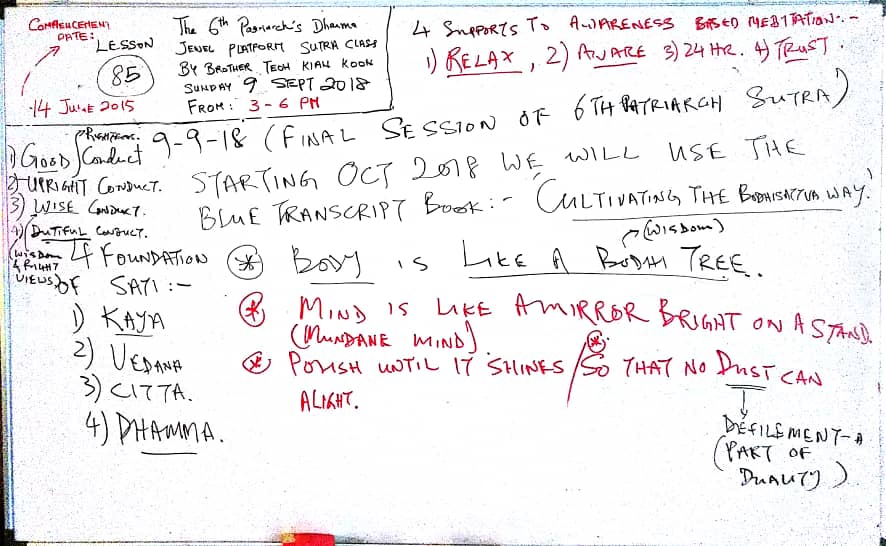 COMMENCEMENT
DATE:
14 JUNE 2015
LESSON
85
The 6th Patriarch's Dharma
JEWEL PLATFORM SUTRA CLASS
BY BROTHER TEOH KIAN KOON
SUNDAY 9 SEPT 2018
FROM: 3-6 PM
4 SUPPORTS TO AWARENESS BASED MEDITATION:-
1) RELAX, 2) AWARE 3) 24 HR. 4) TRUST.
9-9-18 (FINAL SESSION OF 6TH PATRIARCH SUTRA)
STARTING OCT 2018 WE WILL USE THE
BLUE TRANSCRIPT BOOK:- 'CULTIVATING THE BODHISATTVA WAY!
1) GOOD Conduct
2) UPRIGHT CONDUCT.
3) WISE CONDUCT.
4) DUTIFUL CONDUCT.
(WISDOM
& RIGHT
VIEWS)
4 FOUNDATION
OF SATI :-
1) KAYA
2) VEDANA
3) CITTA.
4) DHAMMA.
(WISDOM)
* BODY IS LIKE A BODHI TREE.
* MIND IS LIKE A MIRROR BRIGHT ON A STAND.
(MUNDANE MIND)
* POLISH UNTIL IT SHINES / * SO THAT NO DUST CAN
ALIGHT.
DEFILEMENT-A
(PART OF
DUALITY)